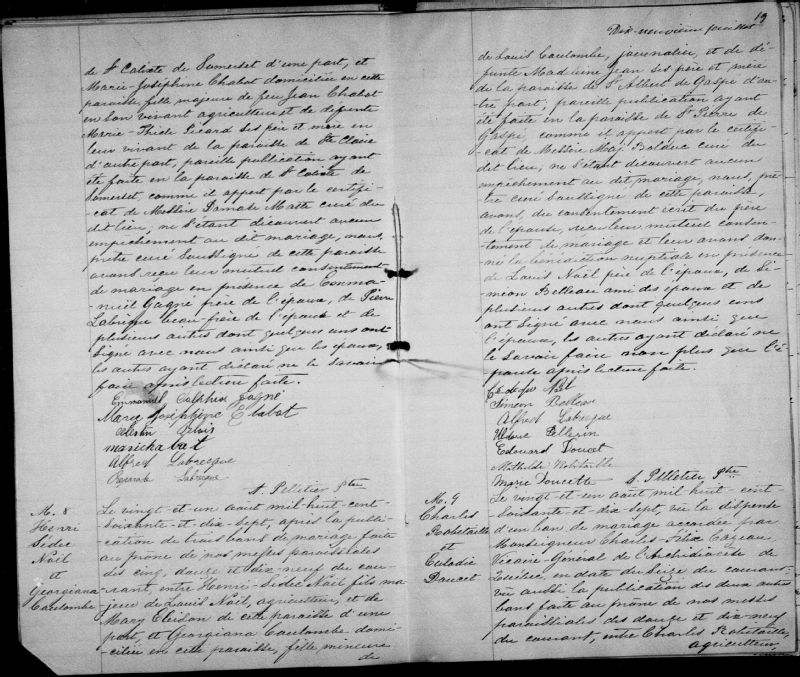 de St Calixte de Somerset d'une part, et
Marie-Joséphine Chabot domiciliée en cette
paroisse, fille majeure de feu Jean Chabot
en son vivant agriculteur et de défunte
Marie-Thècle Picard ses père et mère en
leur vivant de la paroisse de Ste Claire
d'autre part, pareille publication ayant
été faite en la paroisse de St Calixte de
Somerset, comme il appert par le certifi-
cat de Messire Damase Matte curé du
dit lieu, ne s'étant découvert aucun
empêchement au dit mariage, nous,
prêtre curé soussigné de cette paroisse
avons reçu leur mutuel consentement
de mariage en présence de Emma-
nuel Gagné père de l'époux, de Pierre
Labrèque beau-père de l'épouse et de
plusieurs autres dont quelques uns ont
signé avec nous ainsi que les époux,
les autres ayant déclaré ne le savoir
faire après lecture faite.
Emmanuel Gagné
Marie Joséphine Chabot
marie chabot
Alfred Labrecque
Labrèque
A. Pelletier Ptre
M. 8
Henri
Sédec
Noël
et
Georgiana
Coulombe
Le vingt-et-un aout mil huit-cent-
soixante-et-dix-sept, après la publi-
cation de trois bans de mariage faite
au prône de nos messes paroissiales
des cinq, douze et dix-neuf du cou-
rant, entre Henri-Sédec Noël fils ma-
jeur de Louis Noël, agriculteur, et de
Mary Elison de cette paroisse d'une
part, et Georgiana Coulombe domi-
ciliée en cette paroisse, fille mineure
de
19
Dix-neuvième feuillet
de Louis Coulombe, journalier, et de dé-
funte Madeleine Jean ses père et mère
de la paroisse de St Albert de Gaspé d'au-
tre part; pareille publication ayant
été faite en la paroisse de St Pierre de
Gaspé, comme il appert par le certifi-
cat de Messire Maj. Bolduc curé du
dit lieu, ne s'étant découvert aucun
empêchement au dit mariage, nous, prê-
tre curé soussigné de cette paroisse,
avons, du consentement écrit du père
de l'épouse, reçu leur mutuel consen-
tement de mariage et leur avons don-
né la bénédiction nuptiale en présence
de Louis Noël père de l'époux, de Si-
méon Belleau ami des époux et de
plusieurs autres dont quelques uns
ont signé avec nous ainsi que
l'époux, les autres ayant déclaré ne
le savoir faire non plus que l'é-
pouse après lecture faite.
Siméon Belleau
Alfred Labrecque
Pellerin
Edouard Doucet
Mathilde Robitaille
Marie Doucette
A. Pelletier Ptre
M. 9
Charles
Robetaille
et
Eulodie
Doucet
Le vingt-et-un aout mil huit-cent
soixante-et-dix-sept, vu la dispense
d'un ban de mariage accordée par
Monseigneur Charles-Félix Cazeau
Vicaire-Général de l'Archidiocèse de
Québec, en date du seize du courant;
vu aussi la publication des deux autres
bans faite au prône de nos messes
paroissiales des douze et dix-neuf
du courant, entre Charles Robetaille,
agriculteur,